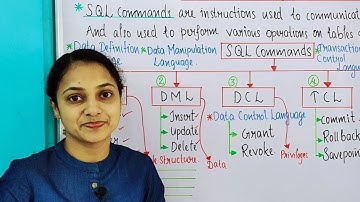 * SQL Commands are instructions used to communicat
And also used to perform various operations on tables
* Data Definition
* Data Manipulation Language.
SQL Commands
* Transaction Control Langu
② ③ ④
DML DCL TCL
Insert
Update
Delete
* Data Control Language
Grant
Revoke
Commit
Rollback
Savepoin
Structure.
Data
Privileges